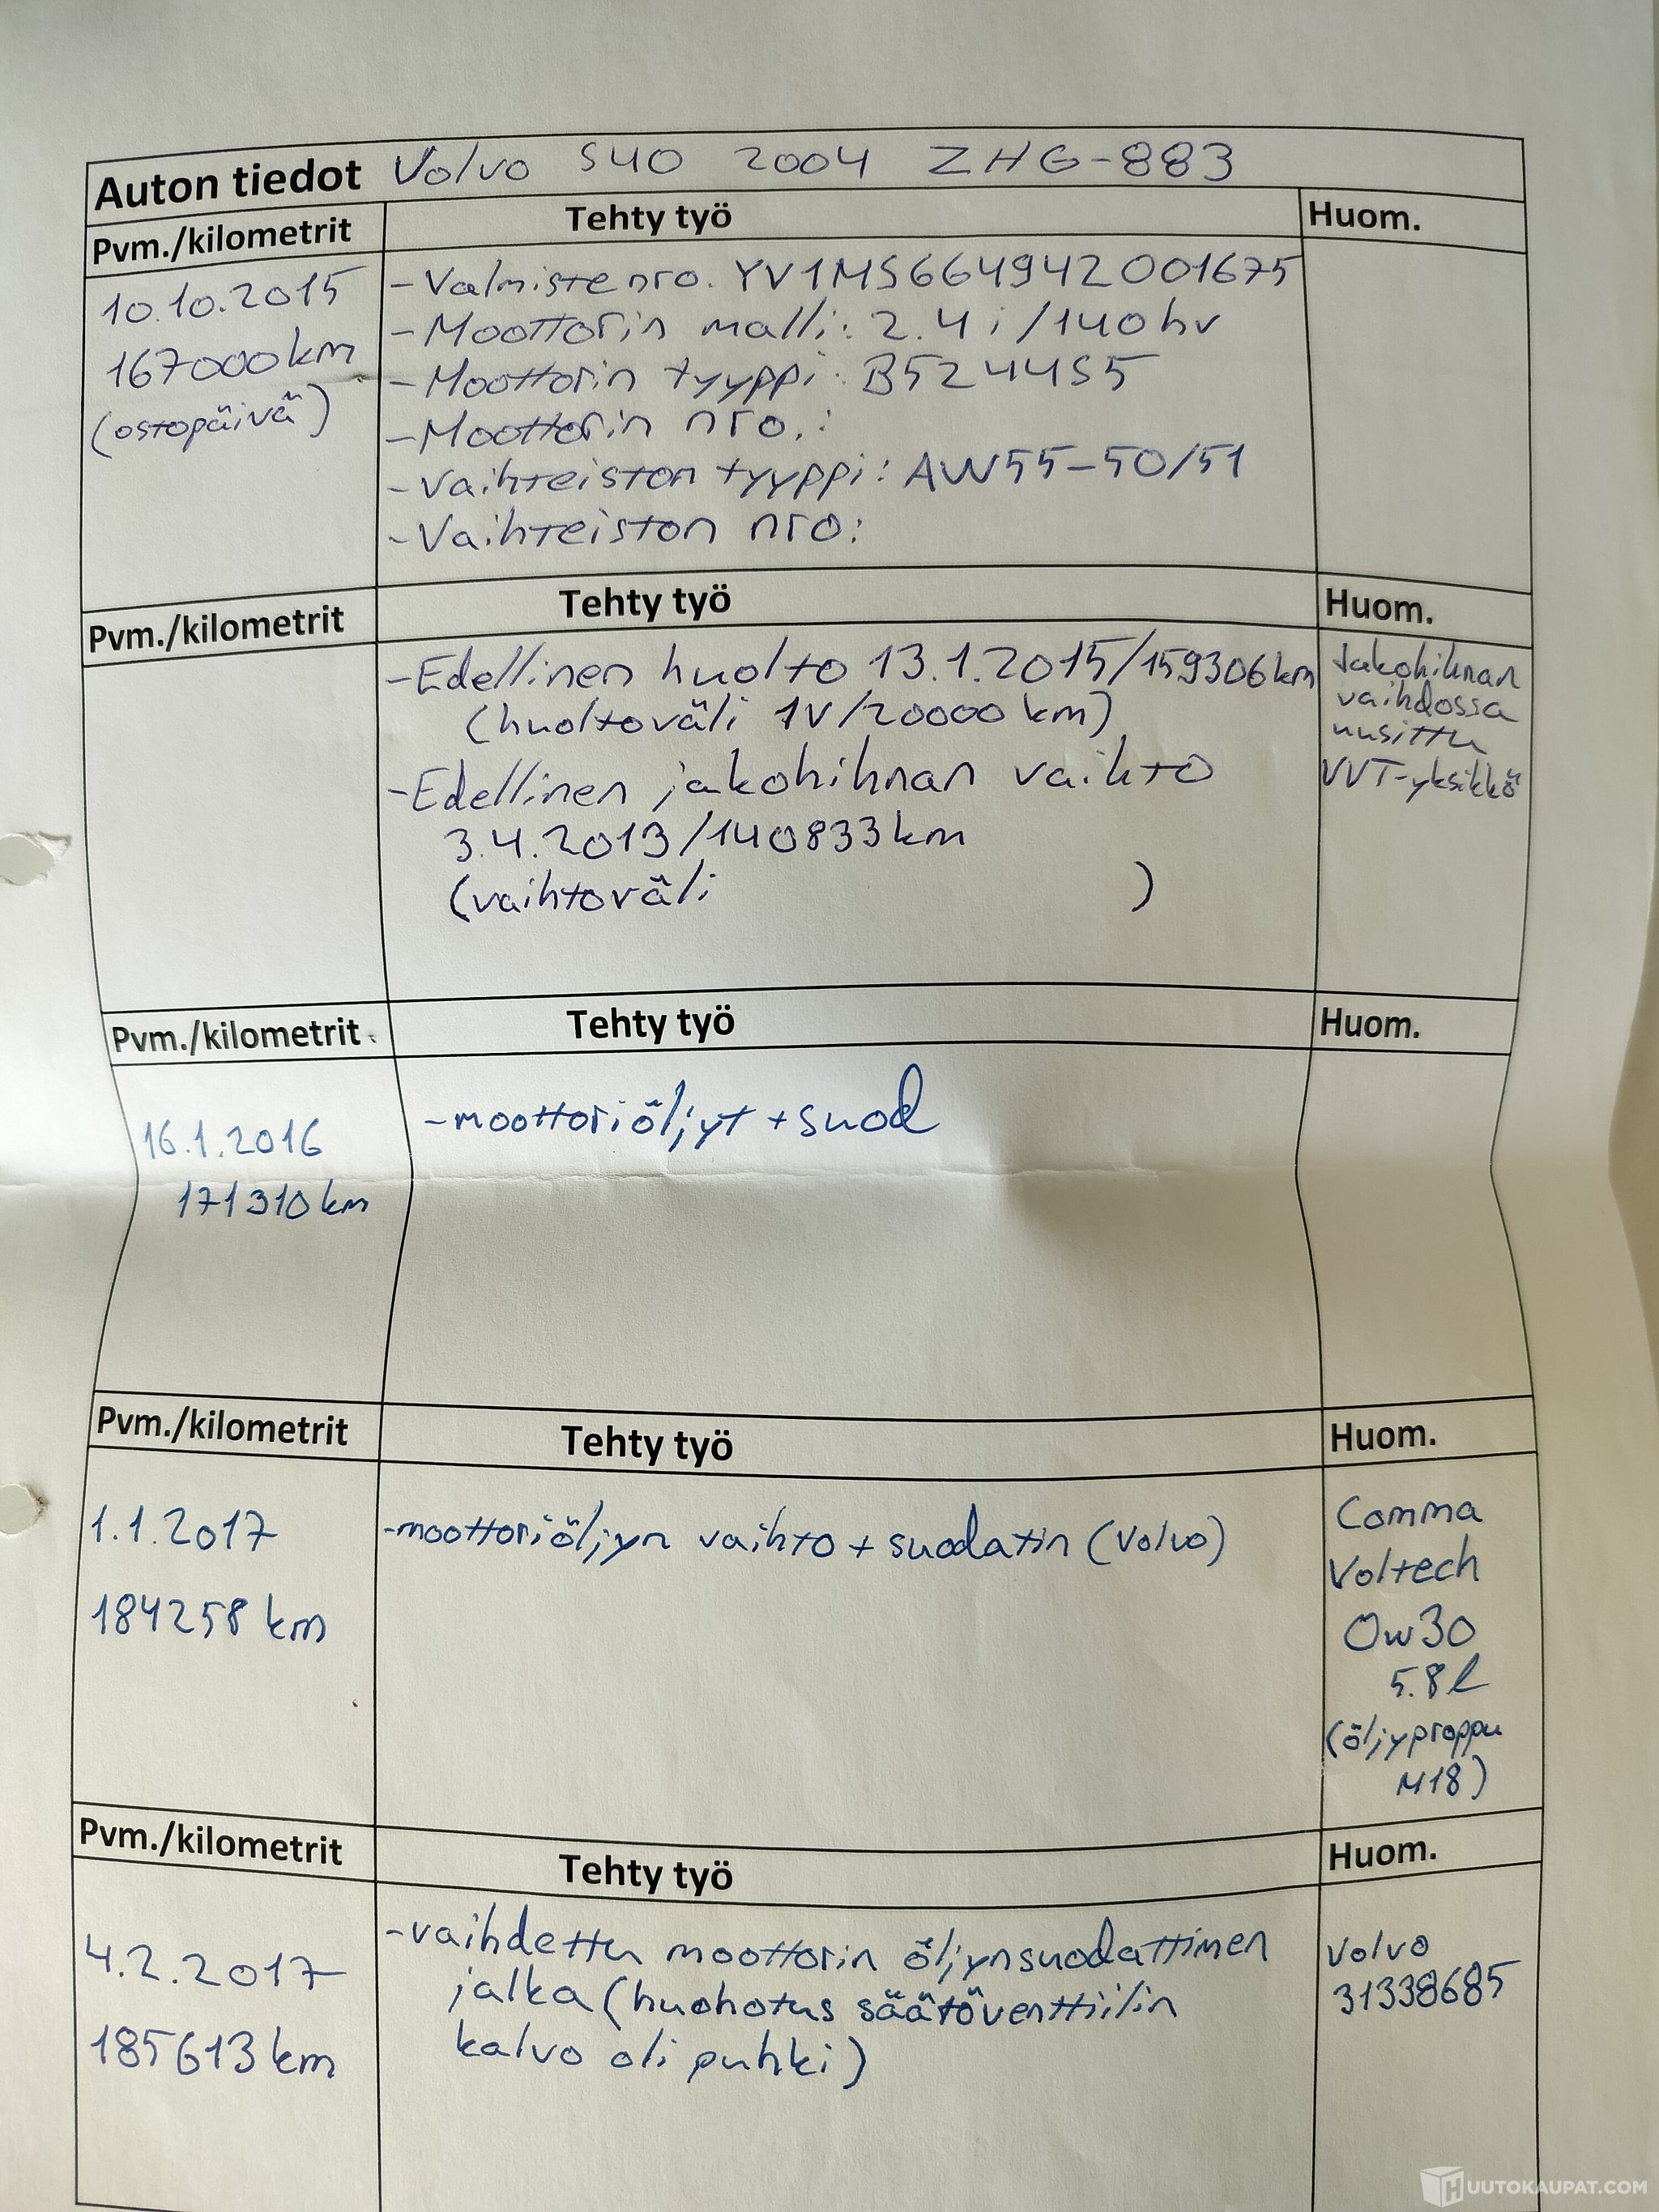 Auton tiedot Volvo S40 2004 ZHG-883
Pvm./kilometrit Tehty työ Huom.
10.10.2015
167000km
(ostopäivä)
-Valmistenro. YV1MS664942001675
-Moottorin malli: 2.4i/140hv
-Moottorin tyyppi: B5244S5
-Moottorin nro.:
-Vaihteiston tyyppi: AW55-50/51
-Vaihteiston nro:
Pvm./kilometrit Tehty työ Huom.
-Edellinen huolto 13.1.2015/159306km
(huoltoväli 1V/20000km)
-Edellinen jakohihnan vaihto
3.4.2013/140833km
(vaihtoväli )
Jakohihnan
vaihdossa
uusittu
VVT-yksikkö
Pvm./kilometrit Tehty työ Huom.
16.1.2016
171310km
-moottoriöljyt+suod
Pvm./kilometrit Tehty työ Huom.
1.1.2017
184258km
-moottoriöljyn vaihto + suodatin (Volvo)
Comma
Voltech
0w30
5.8l
(öljyproppu
M18)
Pvm./kilometrit Tehty työ Huom.
4.2.2017
185613km
-vaihdettu moottorin öljynsuodattimen
jalka (huohotus säätöventtiilin
kalvo oli puhki)
Volvo
31338685
HUUTOKAUPAT.COM